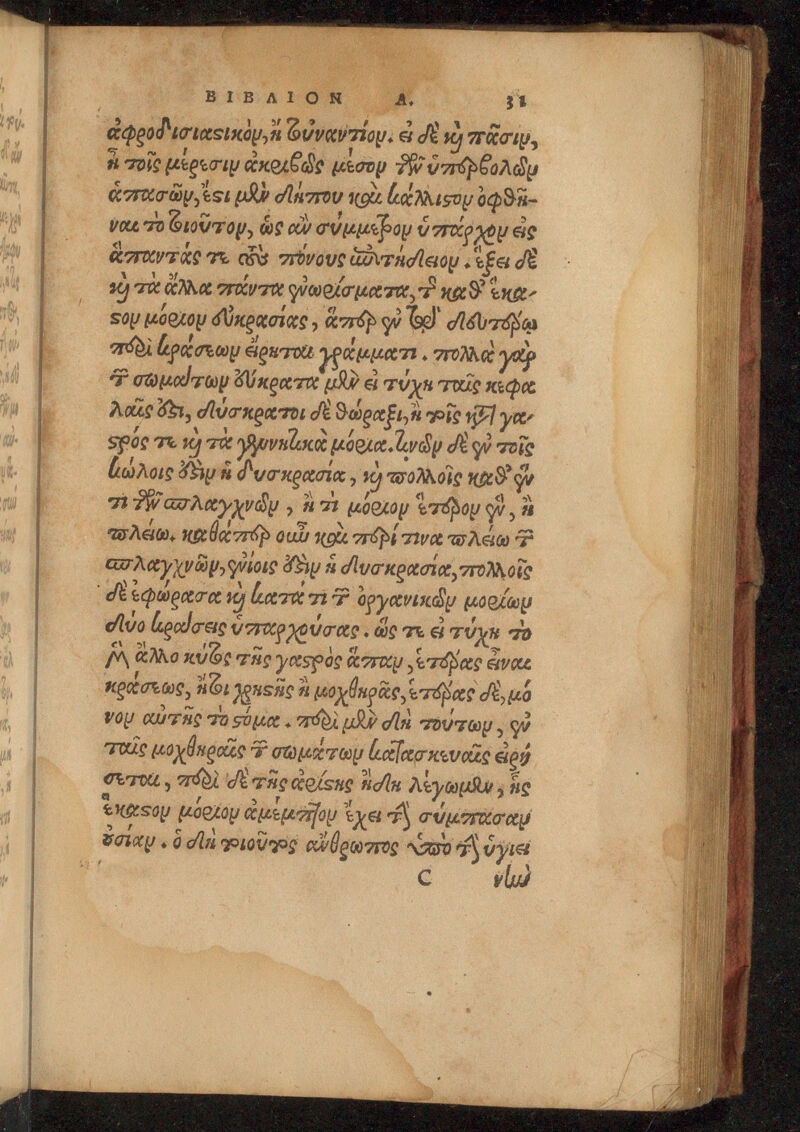 ΒΙΒΛΙΟΝ Α. 31
ἀφροδισιαστικὸν, ἢ τοὐναντίον. εἰ δὲ καὶ πᾶσιν,
ἢ τοῖς μέρεσιν ἀκριβῶς μέσον τῶν ὑπερβολῶν
ἁπασῶν, ἔστι μὲν δήπου καὶ κάλλιστον ὀφθῆ-
ναι τὸ τοιοῦτον, ὡς ἂν σύμμετρον ὑπάρχον εἰς
ἅπαντάς τε τοὺς πόνους αὐτήδειον. ἕξει δὲ
καὶ τὰ ἄλλα πάντα γνωρίσματα, τῆς καθ' ἕκα-
στον μόριον εὐκρασίας, ἅπερ ἐν τῷ δευτέρῳ
περὶ κράσεων εἴρηται γράμματι. πολλὰ γὰρ
τῶν σωμάτων εὔκρατα μὲν εἰ τύχῃ ταῖς κεφα
λαῖς ἐστι, δύσκρατοι δὲ θώραξι, ἢ τοῖς κατὰ γα-
στρός τε καὶ τὰ γεννητικὰ μόρια. ἐνῶν δὲ ἐν τοῖς
κώλοις ἐστὶν ἡ δυσκρασία, καὶ πολλοῖς καθ' ἕν
τι τῶν σπλάγχνων, ἤ τι μόριον ἕτερον ἓν, ἢ
πλείω. καθάπερ οὖν καὶ περί τινα πλείω τῶν
σπλάγχνων, ἐνίοις ἐστὶν ἡ δυσκρασία, πολλοῖς
δὲ ἐφώρασα καὶ κατά τι τῶν ὀργανικῶν μορίων
δύο κράσεις ὑπαρχούσας. ὥς τε εἰ τύχῃ τὸ
μὲν ἄλλο κύτος τῆς γαστρὸς ἅπαν, ἑτέρας εἶναι
κράσεως, ἤτοι χρηστῆς ἢ μοχθηρᾶς, ἑτέρας δὲ, μό
νον αὐτῆς τὸ στόμα. περὶ μὲν δὴ τούτων, ἐν
ταῖς μοχθηραῖς τῶν σωμάτων κατασκευαῖς εἰρή
σεται, περὶ δὲ τῆς ἀρίστης ἤδη λέγωμεν, ἧς
ἕκαστον μόριον ἄμεμπτον ἔχει τὴν σύμπασαν
οὐσίαν. ὁ δὴ τοιοῦτος ἄνθρωπος ὑπὸ τὴν ὑγιει
C νὴν